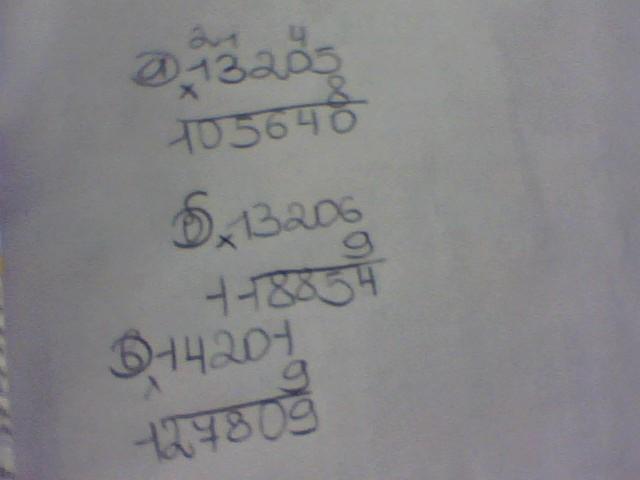 21 4
а) 13205
× 8
105640
б) × 13206
9
118854
в) 14201
× 9
127809